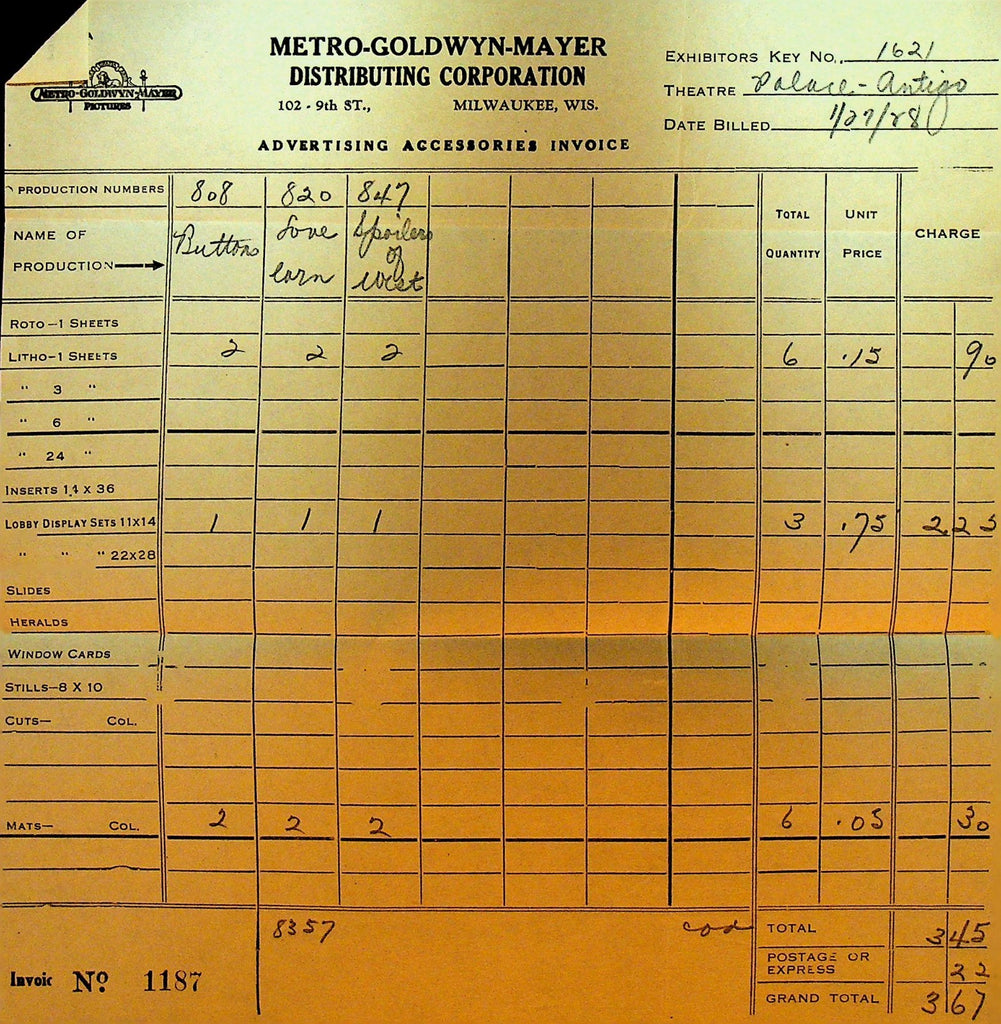 METRO-GOLDWYN-MAYER
DISTRIBUTING CORPORATION
102 - 9th ST., MILWAUKEE, WIS.
ADVERTISING ACCESSORIES INVOICE
METRO-GOLDWYN-MAYER
PICTURES
EXHIBITORS KEY NO. 1621
THEATRE Palace - Antigo
DATE BILLED 1/27/28
PRODUCTION NUMBERS 808 820 847
NAME OF PRODUCTION Buttons Love lorn Spoilers of West
TOTAL QUANTITY UNIT PRICE CHARGE
ROTO-1 SHEETS
LITHO-1 SHEETS 2 2 2 6 .15 90
" 3 "
" 6 "
" 24 "
INSERTS 14 X 36
LOBBY DISPLAY SETS 11X14 1 1 1 3 .75 2 25
" " " 22X28
SLIDES
HERALDS
WINDOW CARDS
STILLS-8 X 10
CUTS- COL.
MATS- COL. 2 2 2 6 .05 30
8357 cod TOTAL 3 45
POSTAGE OR EXPRESS 22
Invoic No. 1187
GRAND TOTAL 3 67